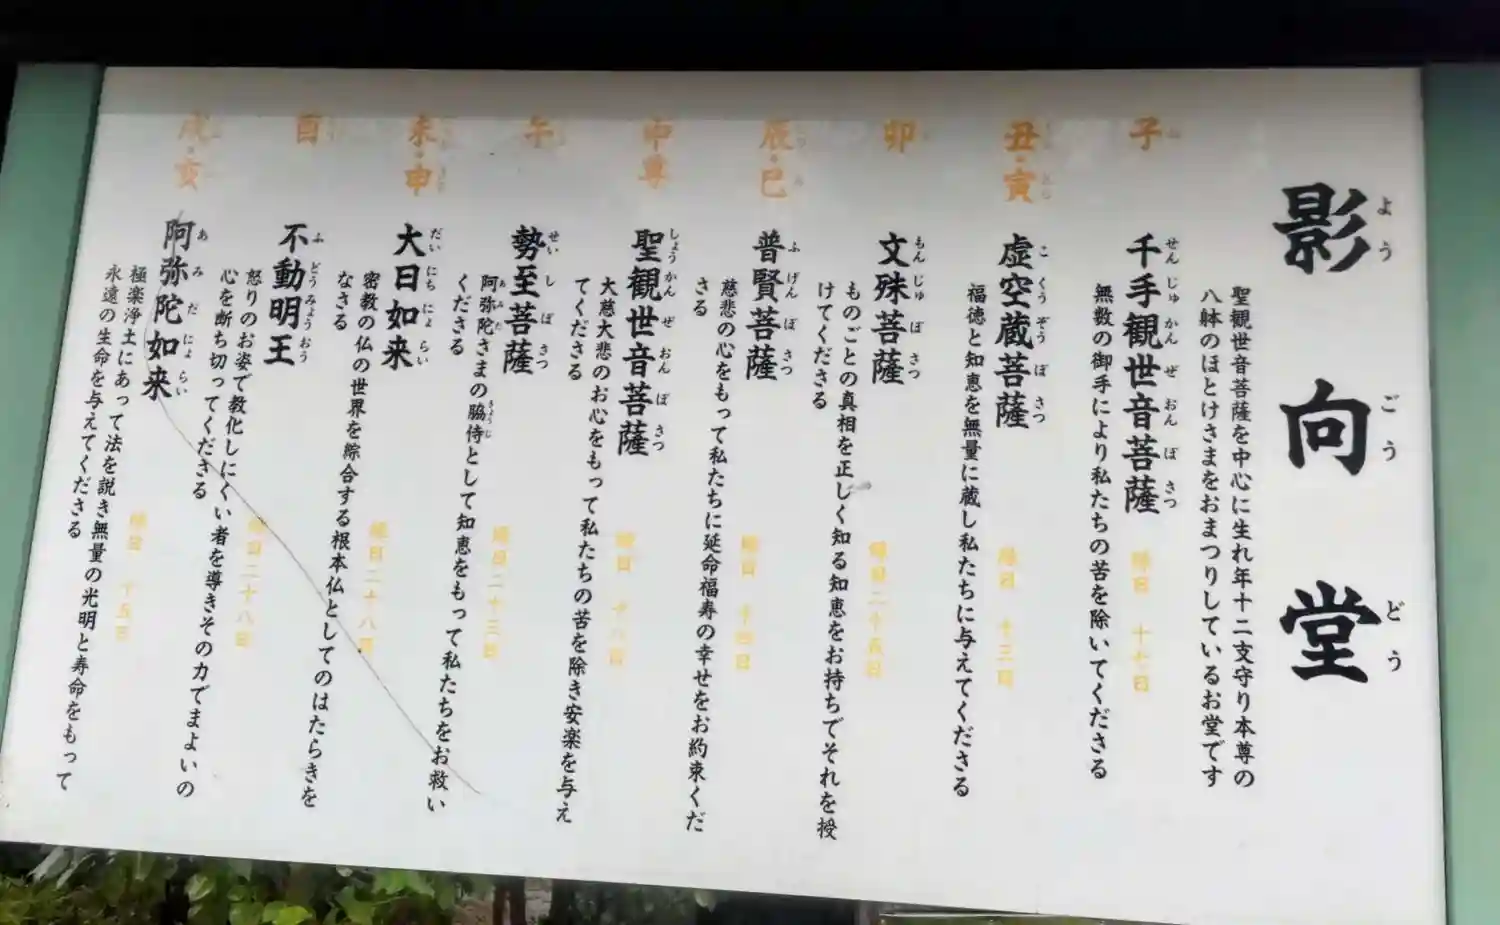 影向堂
ようごうどう
聖観世音菩薩を中心に生れ年十二支守り本尊の
八躰のほとけさまをおまつりしているお堂です
子
ね
千手観世音菩薩
せんじゅかんぜおんぼさつ
縁日 十七日
無数の御手により私たちの苦を除いてくださる
丑・寅
虚空蔵菩薩
こくうぞうぼさつ
縁日 十三日
福徳と知恵を無量に蔵し私たちに与えてくださる
卯
文殊菩薩
もんじゅぼさつ
縁日二十五日
ものごとの真相を正しく知る知恵をお持ちでそれを授
けてくださる
辰・巳
普賢菩薩
ふげんぼさつ
縁日 十四日
慈悲の心をもって私たちに延命福寿の幸せをお約束くだ
さる
中尊
聖観世音菩薩
しょうかんぜおんぼさつ
縁日 十八日
大慈大悲のお心をもって私たちの苦を除き安楽を与え
てくださる
午
勢至菩薩
せいしぼさつ
縁日二十三日
阿弥陀さまの脇侍として知恵をもって私たちをお救い
あみだ
きょうじ
くださる
未・申
大日如来
だいにちにょらい
縁日二十八日
密教の仏の世界を綜合する根本仏としてのはたらきを
なさる
酉
不動明王
ふどうみょうおう
縁日二十八日
怒りのお姿で教化しにくい者を導きその力でまよいの
心を断ち切ってくださる
戌・亥
阿弥陀如来
あみだにょらい
縁日 十五日
極楽浄土にあって法を説き無量の光明と寿命をもって
永遠の生命を与えてくださる